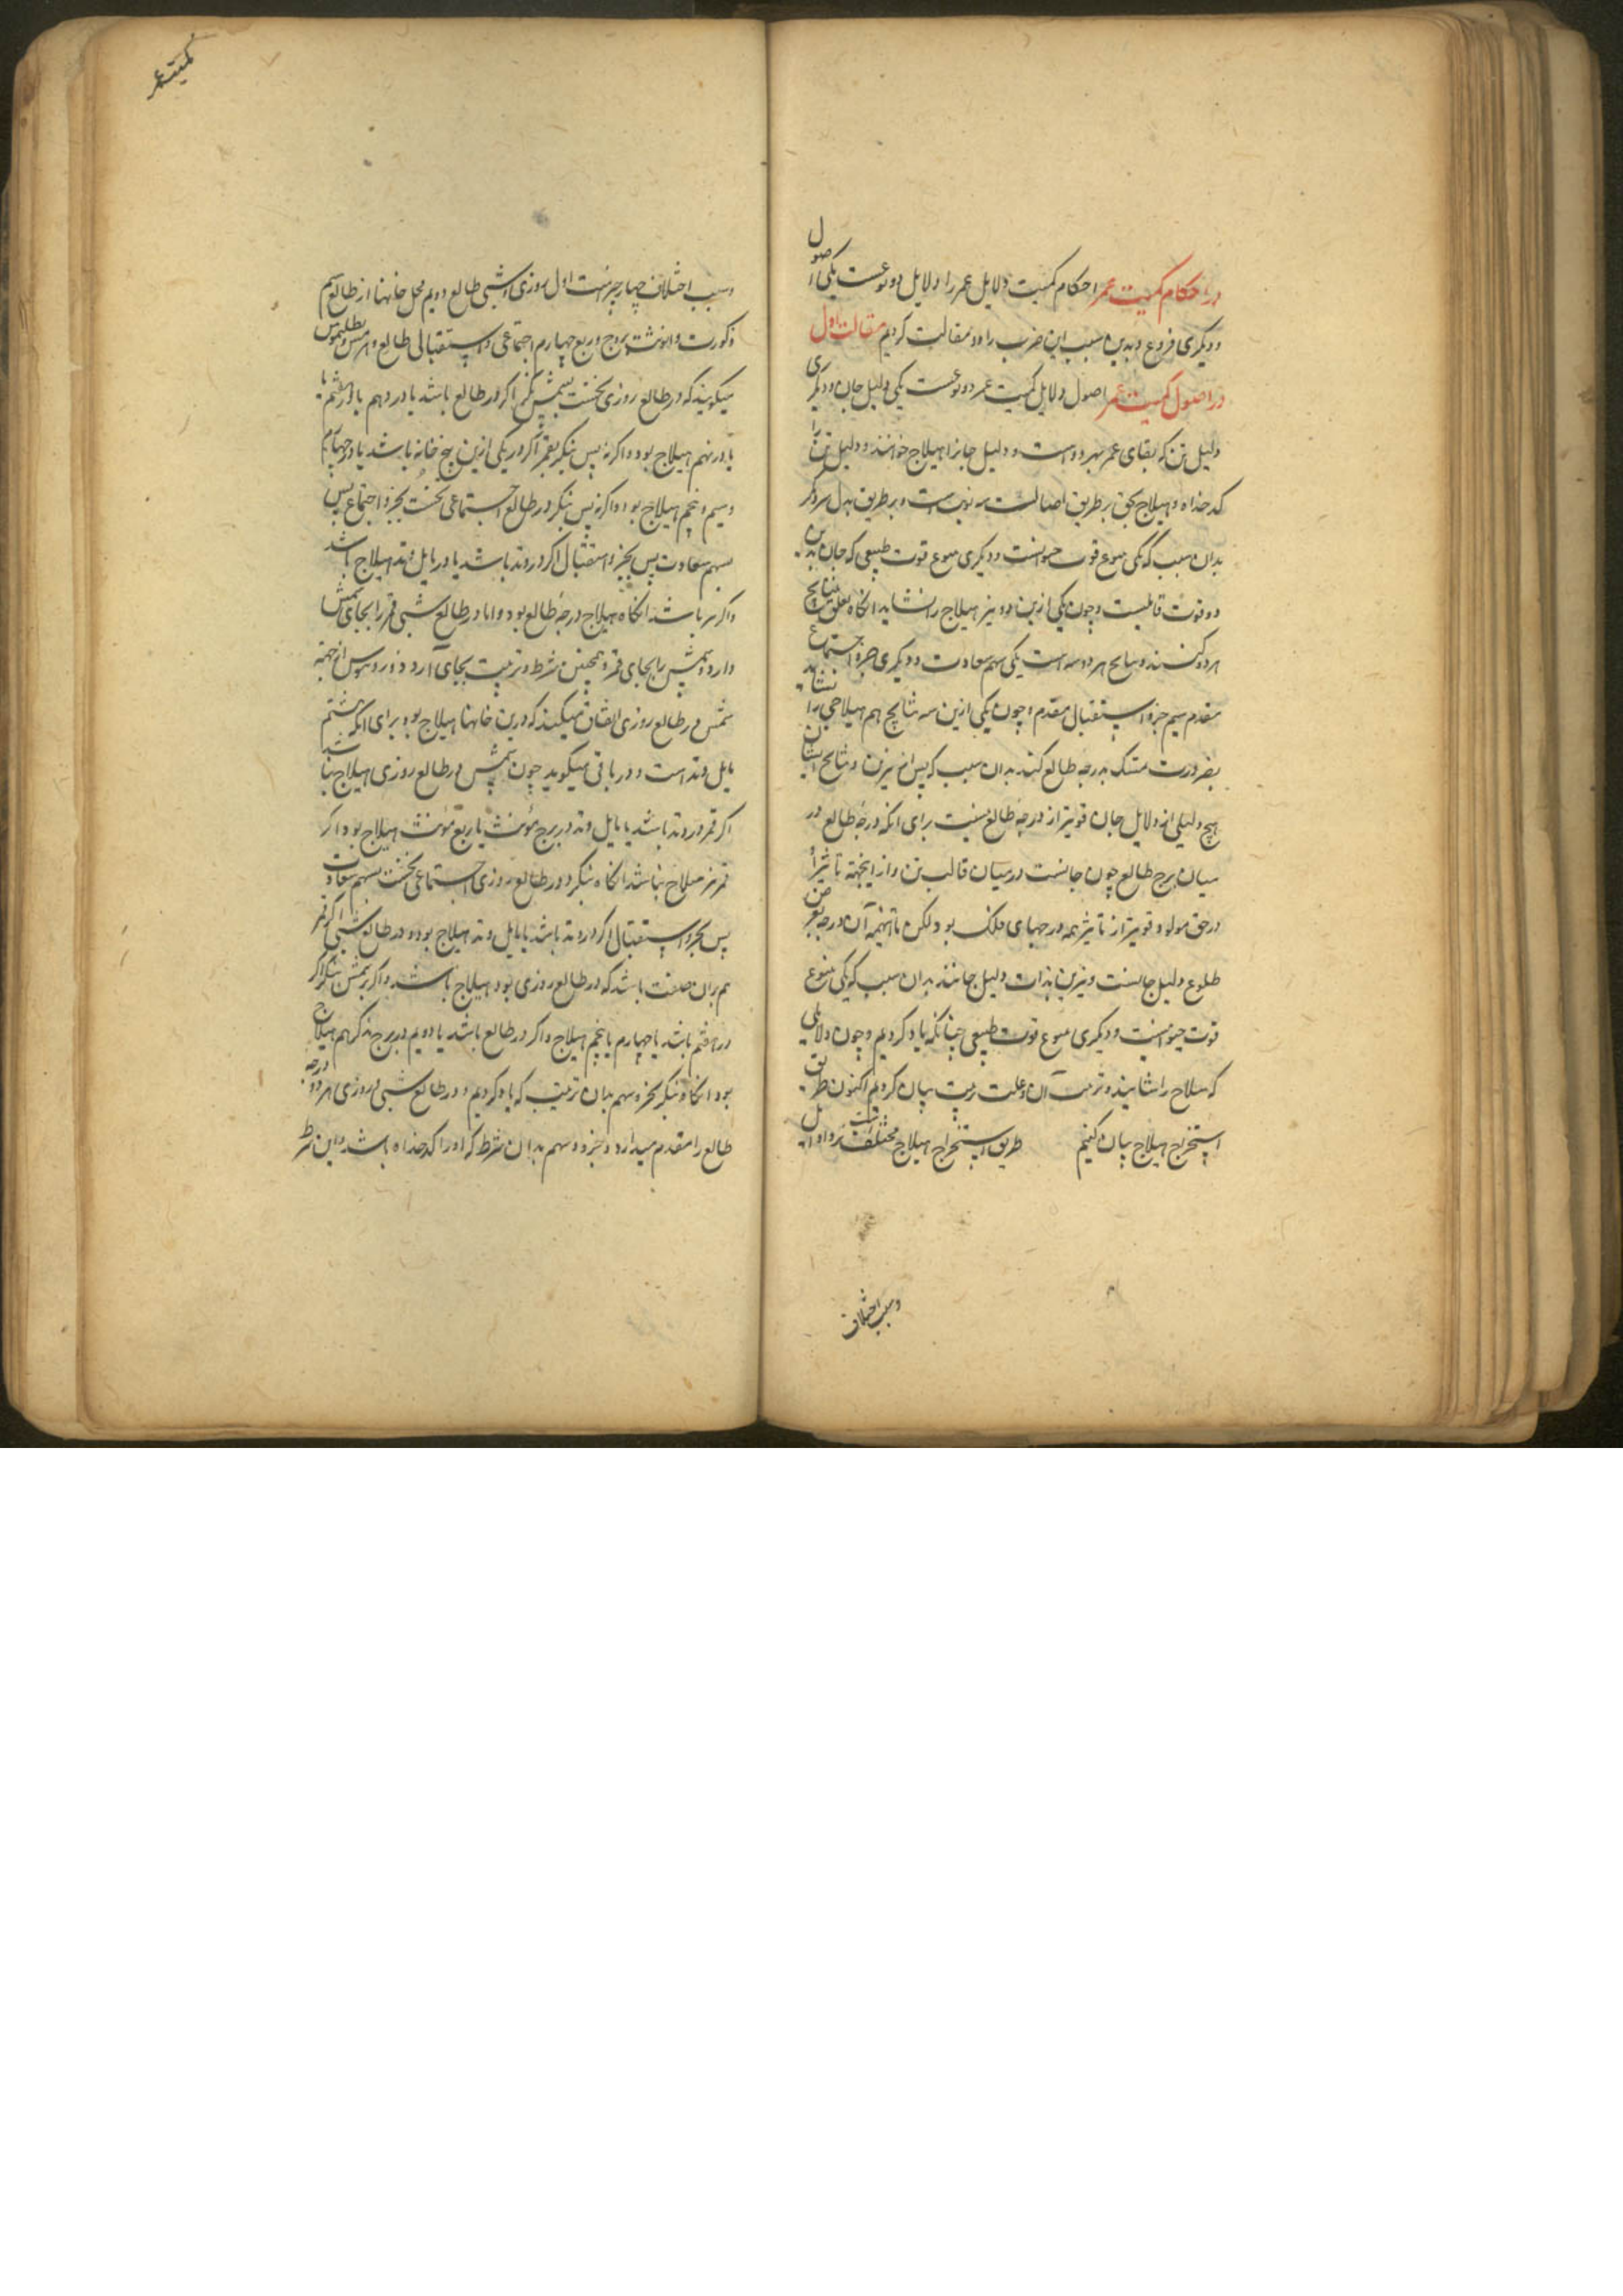 در احکام کمیت عمر احکام کمیت دلایل عمر را دلایل دو نوعست یکی اصول
و دیگری فروع و بدین سبب این ضرب را دو مقالت کردیم مقالت اول
در اصول کمیت عمر اصول دلایل کمیت عمر دو نوعست یکی دلیل جان و دیگری
دلیل تن که بقای عمر بهر دو است و دلیل جانرا هیلاج خوانند و دلیل تن را
کدخداه و هیلاج بحق بر طریق اصالت و بر طریق بدل
بدان سبب که یکی قوت و دیگری قوت طبیعی که جان بدین
دو قوت و چون یکی ازین دو نیر هیلاج را نشاید انکاه
هر دو کنند و هر دو سه است یکی سهم سعادت و دیگری جزو اجتماع
مقدم سیم جزو استقبال مقدم و چون یکی ازین سه هم هیلاجی را نشاید
بضرورت تمسک بدرجه طالع کنند بدان سبب که پس از نیرین و ایشان
هیچ دلیلی از دلایل جان قویتر از درجه طالع نیست برای انکه درجه طالع در
میان برج طالع چون جانست در میان قالب تن و از اینجهة تاثیر او
در حق مولود قویتر از تاثیر همه درجهای فلک بود ولکن با اینهمه آن درجه
طلوع دلیل جانست و نیرین بذات دلیل جانند بدان سبب که یکی
قوت و دیگری قوت طبیعی چنانکه یاد کردیم و چون دلایلی
که هیلاج را شایند و ترتیب آن و علت ترتیب بیان کردیم اکنون طریق
استخراج هیلاج بیان کنیم طریق استخراج هیلاج مختلفست
وسبب اختلاف
کمیت عمر
و سبب اختلاف چهار چیزست اول روزی و شبی طالع دویم محل خانها از طالع سیم
ذکورت و انوثت بروج و ربع چهارم اجتماعی و استقبالی طالع و هرمس و بطلیموس
میگویند که در طالع روزی نخست بشمس نگر اگر در طالع باشد یا در دهم یا در هفتم یا
یا در نهم هیلاج بود و اگر نه پس بنگر بقمر اگر در یکی ازین پنج خانه باشد یا در چهارم
و سیم و پنجم هیلاج بود و اگر نه پس بنگر در طالع اجتماعی نخست بجزو اجتماع پس
بسهم سعادت پس بجزو استقبال اگر در وتد باشد یا در مایل وتد هیلاج باشد
و اگر نباشد انکاه هیلاج درجه طالع بود و اما در طالع شبی قمر را بجای شمس
دارد و شمس را بجای قمر و همچنین شرط و ترتیب بجای آرد
شمس در طالع روزی اتفاق میکنند که درین خانها هیلاج بود برای انکه هشتم
مایل وتد است و در باقی میگوید چون شمس در طالع روزی هیلاج نباشد
اگر قمر در وتد باشد یا مایل وتد در برج مؤنث یا ربع مؤنث هیلاج بود و اگر
قمر نیز هیلاج نباشد انکاه بنگرد در طالع روزی اجتماعی نخست بسهم سعادت
پس بجزو استقبال اگر در وتد باشد یا مایل وتد هیلاج بود و در طالع شبی اگر قمر
هم بران صفت باشد که در طالع روزی بود هیلاج باشد و اگر نه بشمس بنگر اگر
در هفتم باشد یا چهارم یا پنجم هیلاج و اگر در طالع باشد یا دویم در برج مذکر هم هیلاج
بود انکاه بنگر بجزو و سهم بدان ترتیب که یاد کردیم و در طالع شبی و روزی هر دو درجه
طالع را مقدم میدارد و جزو و سهم بدان شرط که او را کدخداه باشد و این شرط